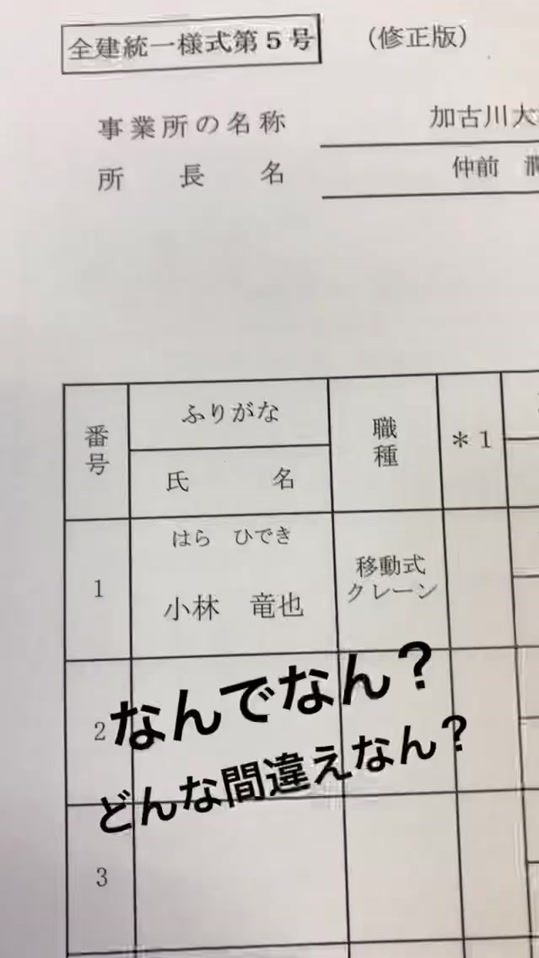 全建統一様式第5号
(修正版)
事業所の名称
加古川大
所長名
仲前
番号
ふりがな
氏名
職種
*1
1
はら ひでき
小林 竜也
移動式
クレーン
2
なんでなん?
どんな間違えなん?
3